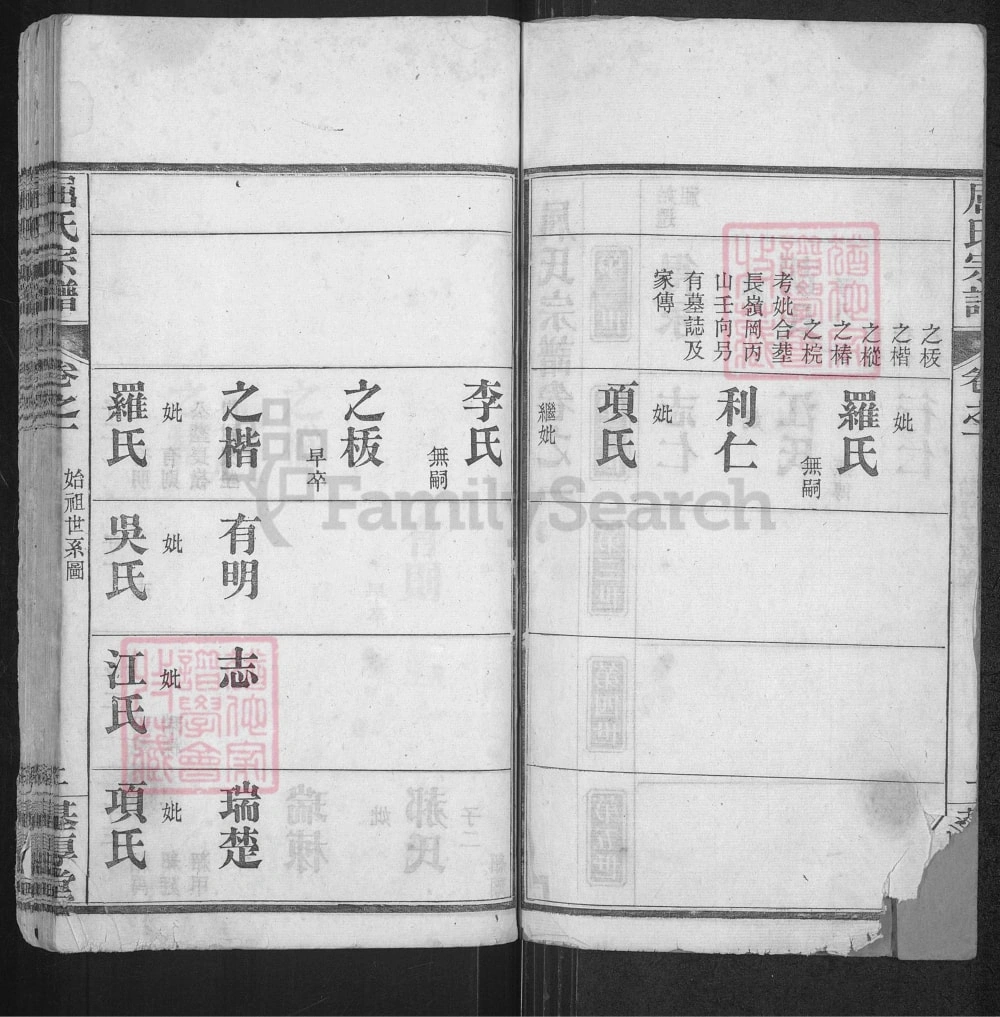 屈氏宗譜
卷之一
之板
之楷
之樅
之椿
之梡
考妣合塟
長嶺岡丙
山壬向另
有墓誌及
家傳
妣
羅氏
無嗣
利仁
妣
項氏
繼妣
李氏
無嗣
之板
早卒
之楷
妣
羅氏
有明
妣
吳氏
志
妣
江氏
瑞楚
妣
項氏
屈氏宗譜
卷之一
始祖世系圖
二
FamilySearch